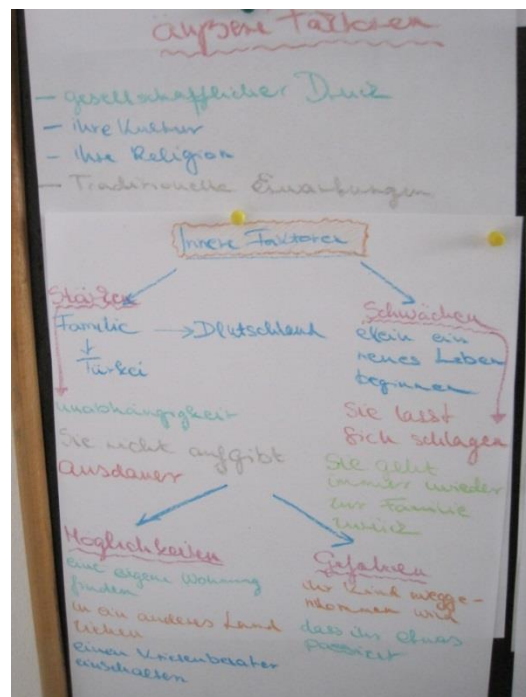 äußere Faktoren
- gesellschaftlicher Druck
- ihre Kultur
- ihre Religion
- Traditionelle Erwartungen
Innere Faktoren
Stärken
Familie → Deutschland
↓
Türkei
unabhängigkeit
Sie nicht aufgibt
Ausdauer
Schwächen
ein
neues Leben
beginnen
Sie lasst
sich schlagen
Sie geht
immer wieder
zur Familie
zurück
Möglichkeiten
eine eigene Wohnung
finden
in ein anderes Land
ziehen
einen Krisenberater
einschalten
Gefahren
ihr Kind wegge-
nommen wird
dass ihr etwas
passiert